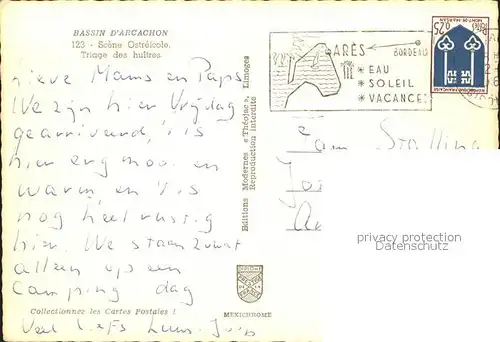 BASSIN D'ARCACHON
123 - Scène Ostréicole.
Triage des huîtres
lieve Mams en Paps
We zijn hier Vrijdag
gearriveerd, 't is
hier erg mooi en
warm en 't is
nog heel rustig
hier. We staan zowat
alleen op een
camping dag
Collectionnez les Cartes Postales !
Veel liefs
Editions Modernes « Théojac », Limoges
Reproduction interdite
MEXICHROME
ARÈS
BORDEAUX
* EAU
* SOLEIL
* VACANCES
0,25
MONT-DE-MARSAN
REPUBLIQUE FRANCAISE
privacy protection
Datenschutz